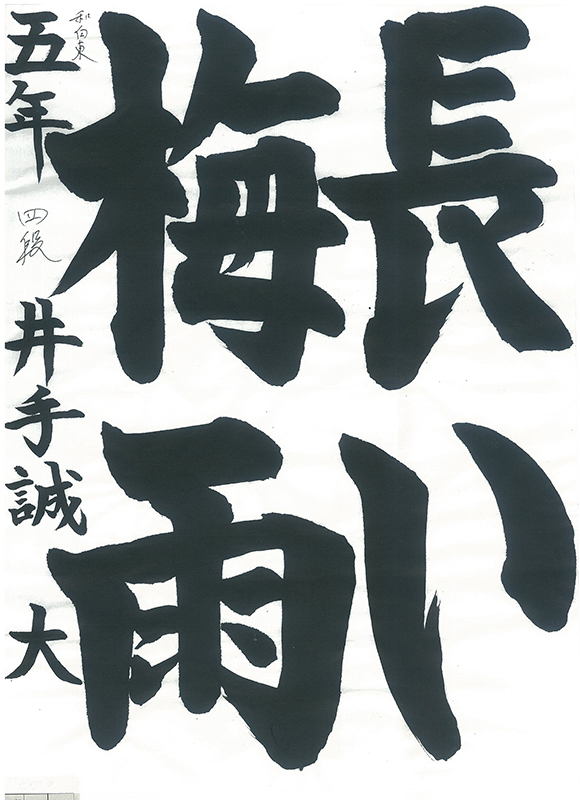 長い
梅雨
和向東
五年 四段 井手誠大